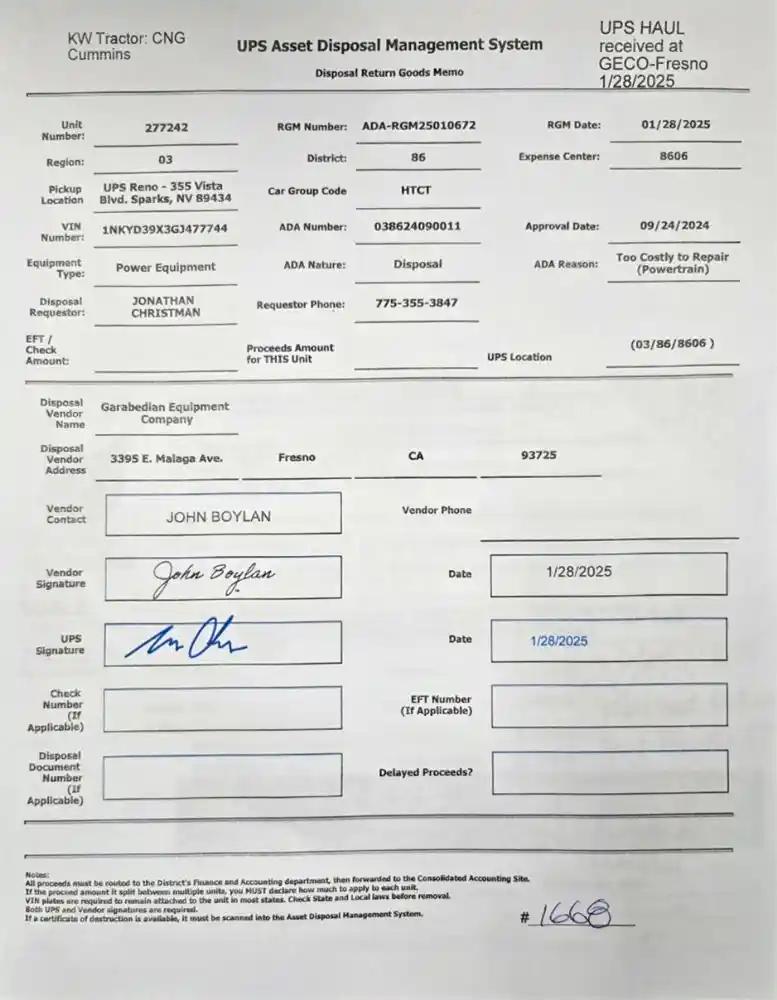 KW Tractor: CNG
Cummins
UPS Asset Disposal Management System
Disposal Return Goods Memo
UPS HAUL
received at
GECO-Fresno
1/28/2025
Unit
Number:
277242
RGM Number:
ADA-RGM25010672
RGM Date:
01/28/2025
Region:
03
District:
86
Expense Center:
8606
Pickup
Location
UPS Reno - 355 Vista
Blvd. Sparks, NV 89434
Car Group Code
HTCT
VIN
Number:
1NKYD39X3GJ477744
ADA Number:
038624090011
Approval Date:
09/24/2024
Equipment
Type:
Power Equipment
ADA Nature:
Disposal
ADA Reason:
Too Costly to Repair
(Powertrain)
Disposal
Requestor:
JONATHAN
CHRISTMAN
Requestor Phone:
775-355-3847
EFT /
Check
Amount:
Proceeds Amount
for THIS Unit
UPS Location
(03/86/8606 )
Disposal
Vendor
Name
Garabedian Equipment
Company
Disposal
Vendor
Address
3395 E. Malaga Ave.
Fresno
CA
93725
Vendor
Contact
JOHN BOYLAN
Vendor Phone
Vendor
Signature
John Boylan
Date
1/28/2025
UPS
Signature
Date
1/28/2025
Check
Number
(If
Applicable)
EFT Number
(If Applicable)
Disposal
Document
Number
(If
Applicable)
Delayed Proceeds?
Notes:
All proceeds must be routed to the District's Finance and Accounting department, then forwarded to the Consolidated Accounting Site.
If the proceed amount it split between multiple units, you MUST declare how much to apply to each unit.
VIN plates are required to remain attached to the unit in most states. Check State and Local laws before removal.
Both UPS and Vendor signatures are required.
If a certificate of destruction is available, it must be scanned into the Asset Disposal Management System.
# 1668